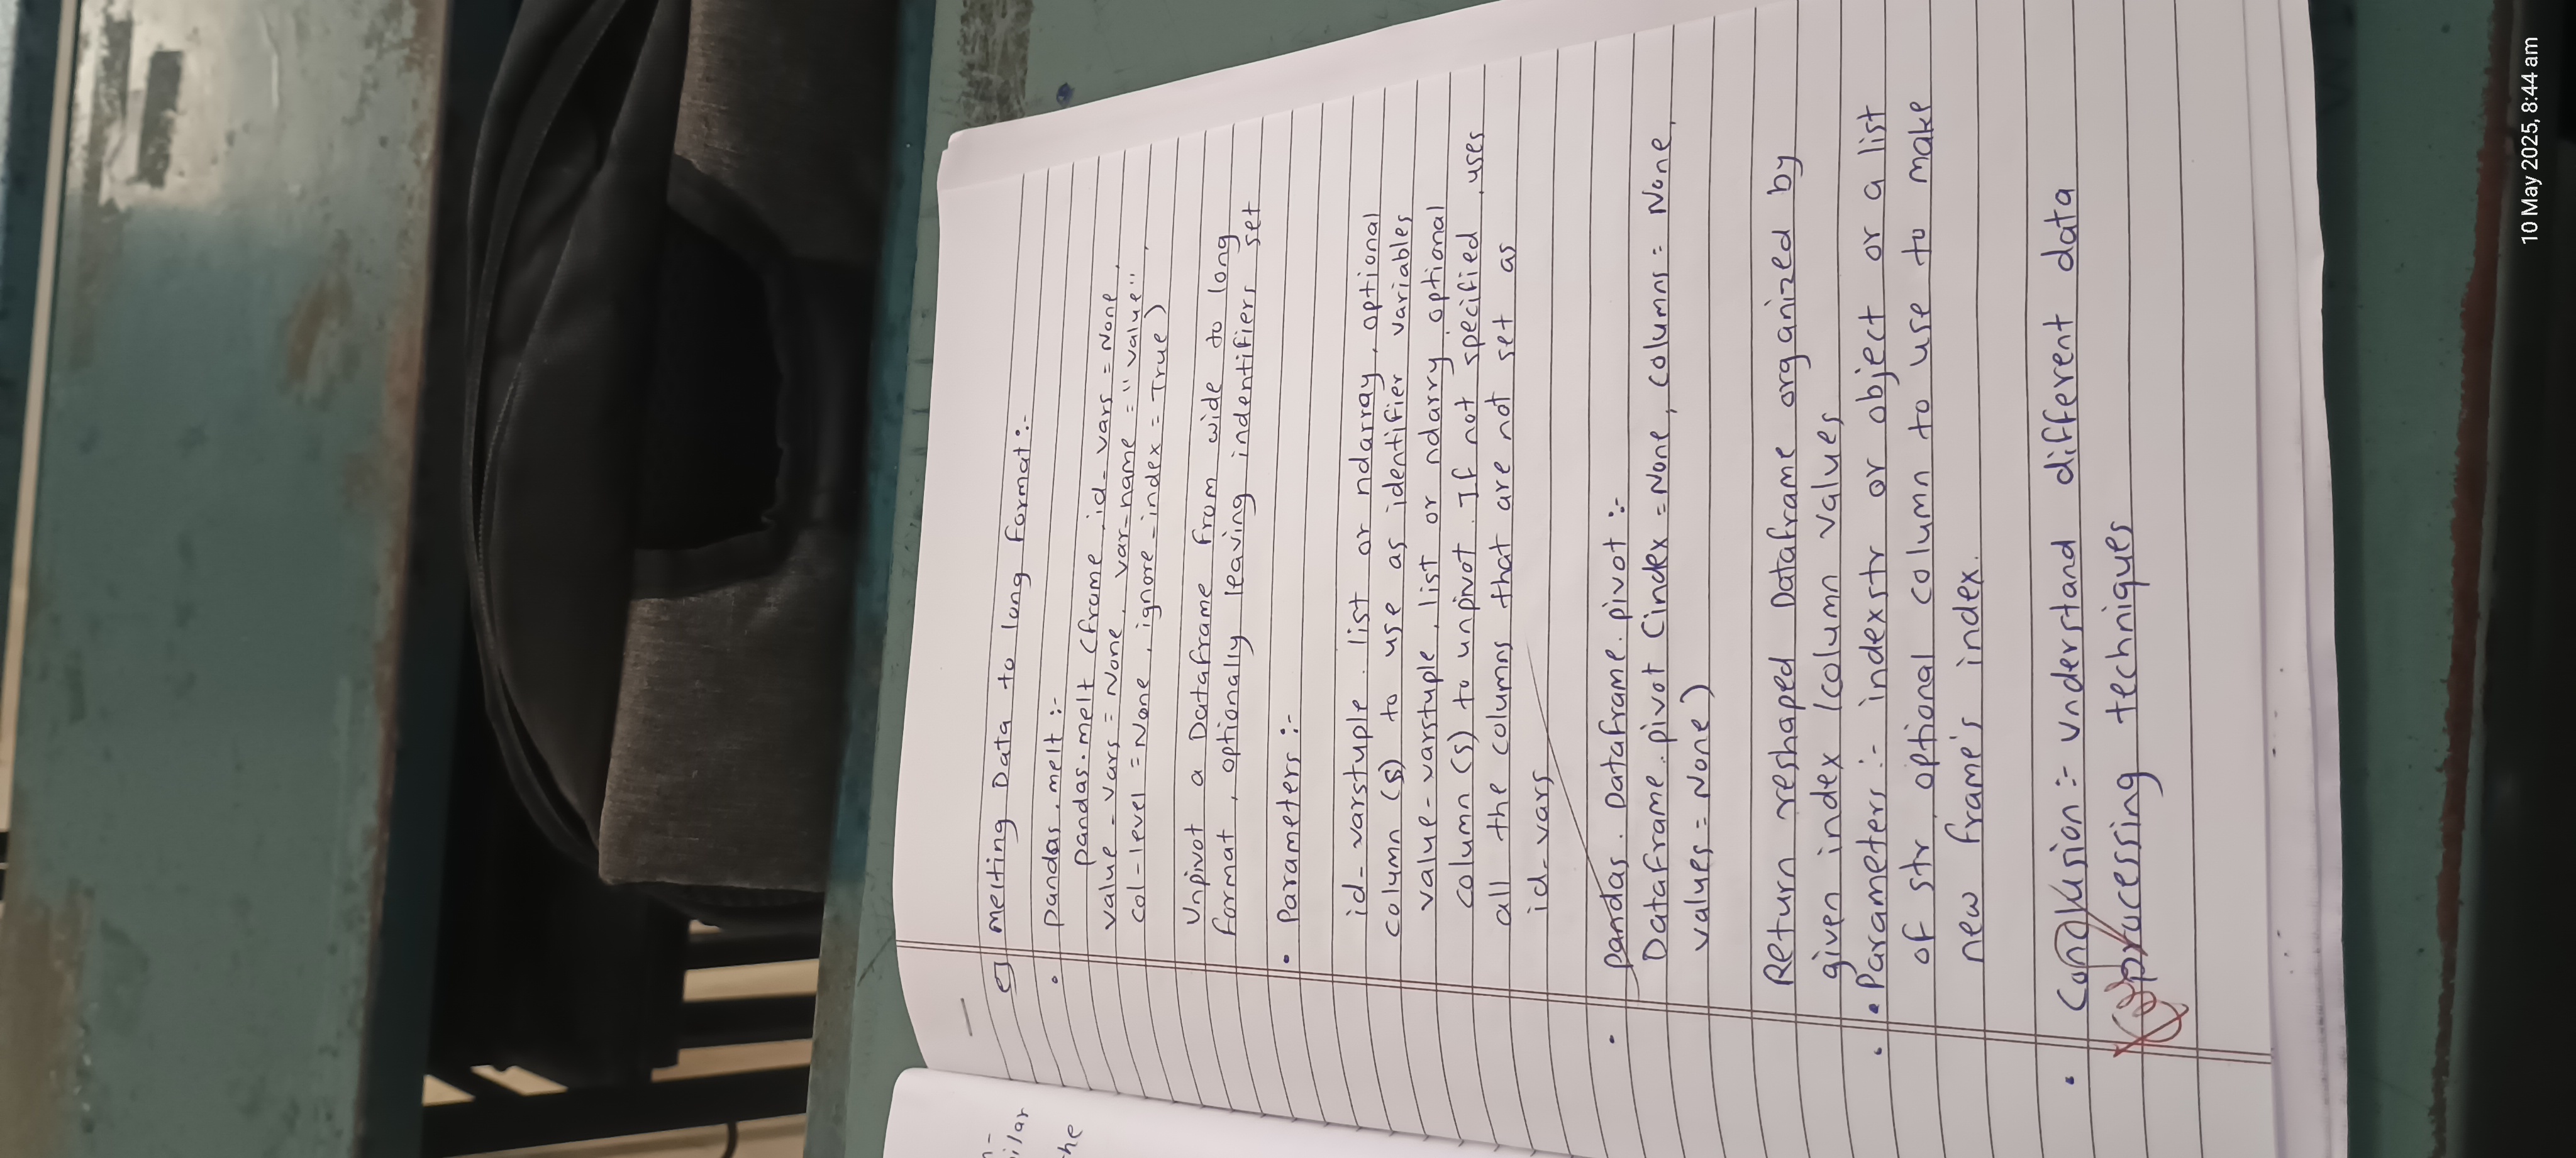 n-
ilar
he
e] melting Data to long format :-
• pandas . melt :-
pandas. melt (frame . id_ vars = None ,
value - vars = None , var-name = "value" ,
col-level = None , ignore - index = True )
Unpivot a Dataframe from wide to long
format , optionally leaving indentifiers set
• Parameters :-
id- varstuple . list or ndarray , optional
column (s) to use as identifier variables
value-varstuple , list or ndarry , optional
column (s) to unpivot . If not specified , uses
all the columns that are not set as
id- vars
• pandas . Dataframe . pivot :-
Dataframe . pivot (index = None , columns = None ,
values = None )
Return reshaped Dataframe organized by
given index /column values
• • Parameters :- indexstr or object or a list
of str , optional column to use to make
new frame's index .
• Conclusion :- Understand different data
processing techniques
10 May 2025, 8:44 am